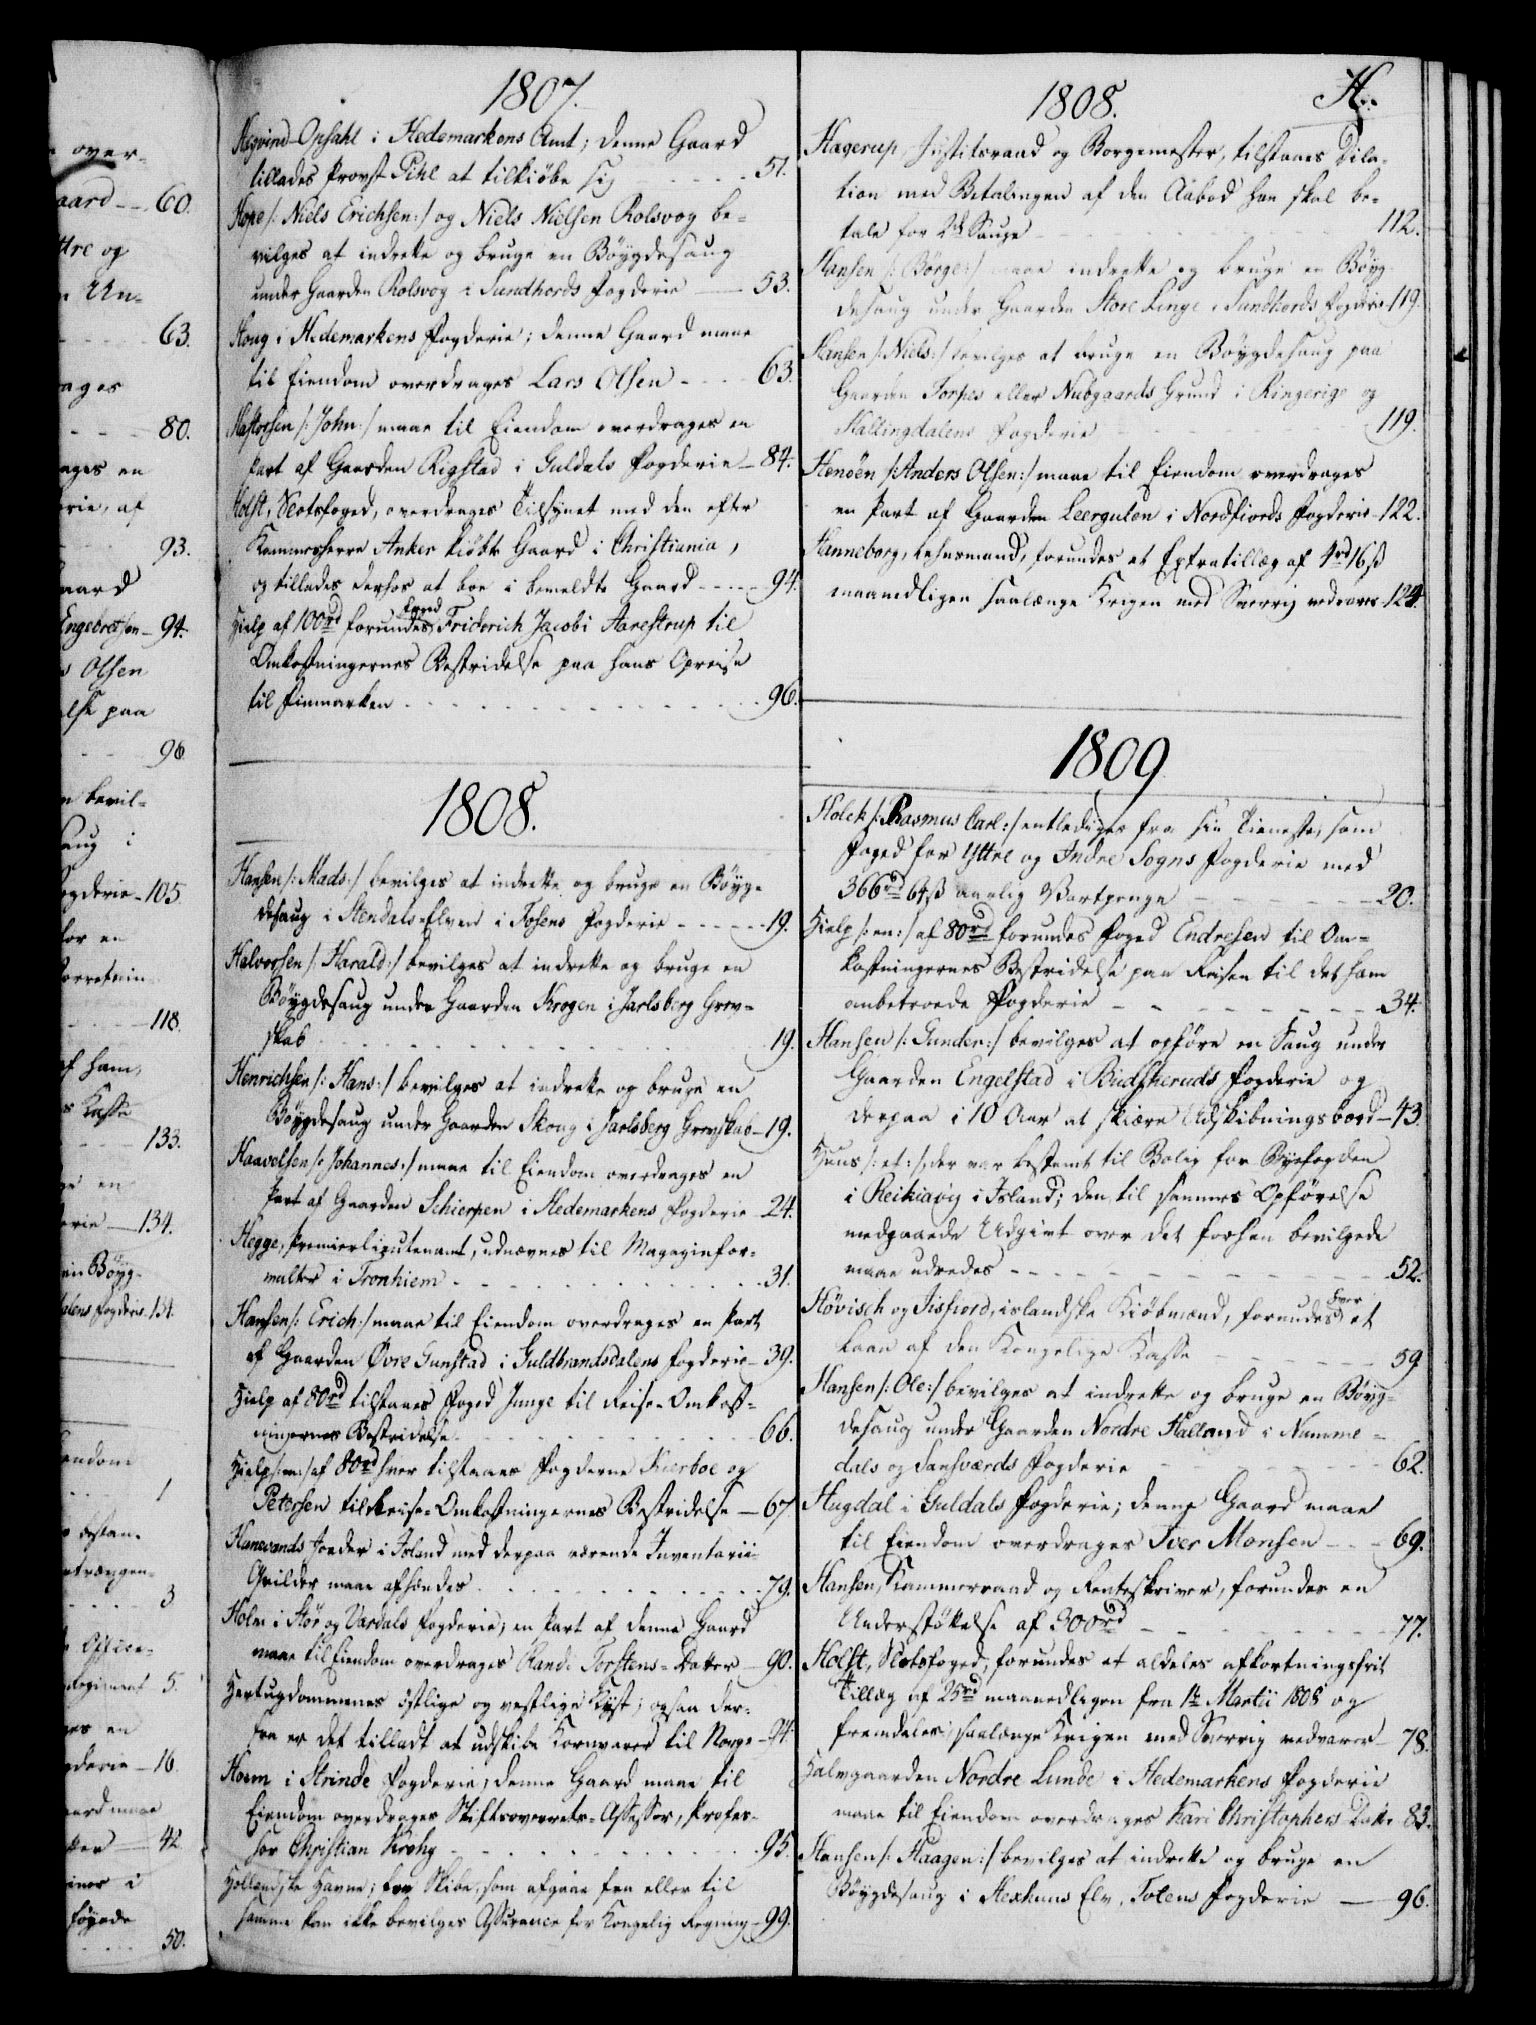 over-
aard — 60.
ttre og
Un-
63.
ages
80.
ages en
erie, af
93.
aard
Engebretsen — 94.
Olsen
else paa
96
bevil-
aug i
ogderie — 105
for en
forretnin
118.
af ham,
Kasse
133.
en
erie — 134.
en Böyg-
dalens Fogderie 134.
endom
1
bestan-
trængen-
3
Office-
Regiment 5.
ges en
gderie — 16.
aard maae
tter — 42
iner i
føyede
50.
1807.
Hegvind-Opsahl i Hedemarkens Amt; denne Gaard
tillades Provst Pihl at tilkiøbe sig 51.
Hope /: Niels Erichsen :/ og Niels Nielsen Rolsvog be-
vilges at indrette og bruge en Böygdesaug
under Gaarden Rolsvog i Sundhords Fogderie — 53.
Houg i Hedemarkens Fogderie; denne Gaard maae
til Eiendom overdrages Lars Olsen 63.
Haftorsen /: John :/ maae til Eiendom overdrages en
Part af Gaarden Rigstad i Guldals Fogderie — 84.
Holst, Slotsfoged, overdrages Tilsynet med den efter
Kammerherre Anker kiøbte Gaard i Christiania,
og tillades derhos at boe i bemeldte Gaard 94.
Hielp af 100rd forundes Friderich Jacobi Aarestrup til
Omkostningernes Bestridelse paa hans Opreise
til Finmarken 96.
1808.
Hansen /: Mads :/ bevilges at indrette og bruge en Böyg-
desaug i Stendals-Elven i Fosens Fogderie 19.
Halvorsen /: Harald :/ bevilges at indrette og bruge en
Böygdesaug under Gaarden Krogen i Jarlsberg Grev-
skab 19.
Henrichsen /: Hans :/ bevilges at indrette og bruge en
Böygdesaug under Gaarden Skoug i Jarlsberg Grevskab — 19.
Haavelsen /: Johannes :/ maae til Eiendom overdrages en
Part af Gaarden Schierpen i Hedemarkens Fogderie 24.
Hegge, Premierlieutenant, udnævnes til Magazinfor-
valter i Tronhiem 31.
Hansen /: Erich :/ maae til Eiendom overdrages en Part
af Gaarden Øvre Gunstad i Guldbrandsdalens Fogderie — 39.
Hielp af 80rd tilstaaes Foged Junge til Reise-Omkost-
ningernes Bestridelse 66.
Hielp /: en :/ af 80rd hver tilstaaes Fogderne Kierboe og
Petersen til Reise-Omkostningernes Bestridelse — 67.
Hanevands Jorder i Island med derpaa værende Inventarii-
Qvilder maae afhændes 79.
Holm i Stør og Værdals Fogderie; en Part af denne Gaard
maae til Eiendom overdrages Randi Torstens-Datter — 90.
Hertugdommenes østlige og vestlige Kyst; ogsaa der-
fra er det tilladt at udskibe Kornvarer til Norge — 94.
Hoem i Strinde Fogderie; denne Gaard maae til
Eiendom overdrages Stiftsoverrets-Assessor, Profes-
sor Christian Krohg 95.
Hollandske Havne; for Skibe, som afgaae fra eller til
samme kan ikke bevilges Assurance for Kongelig Regning — 99.
1808. H.
Hagerup, Justitsraad og Borgemester, tilstaaes Dila-
tion med Betalingen af den Aabod han skal be-
tale for 2de Sauge 112.
Hansen /: Börge :/ maae indrette og bruge en Böyg-
desaug under Gaarden Store Linge i Sundhords Fogderie — 119.
Hansen /: Niels :/ bevilges at bruge en Böygdesaug paa
Gaarden Torpes eller Nubgaards Grund i Ringerige og
Hallingdalens Fogderie 119.
Henöen /: Anders Olsen :/ maae til Eiendom overdrages
en Part af Gaarden Leergulen i Nordfiords Fogderie — 122.
Hanneborg, Lehnsmand, forundes et Extratillæg af 4rd 16ß
maanedligen saalænge Krigen med Sverrig vedvarer — 124.
1809
Holck /: Rasmus Carl :/ entlediges fra sin Tieneste, som
Foged for Yttre og Indre Sogns Fogderie med
366rd 64ß aarlig Vartpenge 20.
Hielp /: en :/ af 80rd forundes Foged Endresen til Om-
kostningernes Bestridelse paa Reisen til det ham
anbetroede Fogderie 34.
Hansen /: Gunder :/ bevilges at opføre en Saug under
Gaarden Engelstad i Budskeruds Fogderie og
derpaa i 10 Aar at skiære Udskibningsbord — 43.
Huus /: et :/, der var bestemt til Bolig for Byefogden
i Reikiavig i Island; den til sammes Opførelse
medgaaede Udgivt over det forhen bevilgede
maae udredes 52.
hver
Høvisch og Jisfiord, islandske Kiöbmænd, forundes et
Laan af den Kongelige Kasse 59
Hansen /: Ole :/ bevilges at indrette og bruge en Böyg-
desaug under Gaarden Nordre Halland i Numme-
dals og Sandsværds Fogderie 62.
Hugdal i Guldals Fogderie; denne Gaard maae
til Eiendom overdrages Iver Monsen 69.
Hansen, Kammerraad og Renteskriver, forundes en
Understøttelse af 300rd 77.
Holst, Slotsfoged, forundes et aldeles afkortningsfrit
Tillæg af 25rd maanedligen fra 1te Martii 1808 og
fremdeles, saalænge Krigen med Sverrig vedvarer — 78.
Halvgaarden Nordre Lunde i Hedemarkens Fogderie
maae til Eiendom overdrages Kari Christophers-Datter 83.
Hansen /: Haagen :/ bevilges at indrette og bruge en
Böygdesaug i Hexhuus Elv, Totens Fogderie — 96.